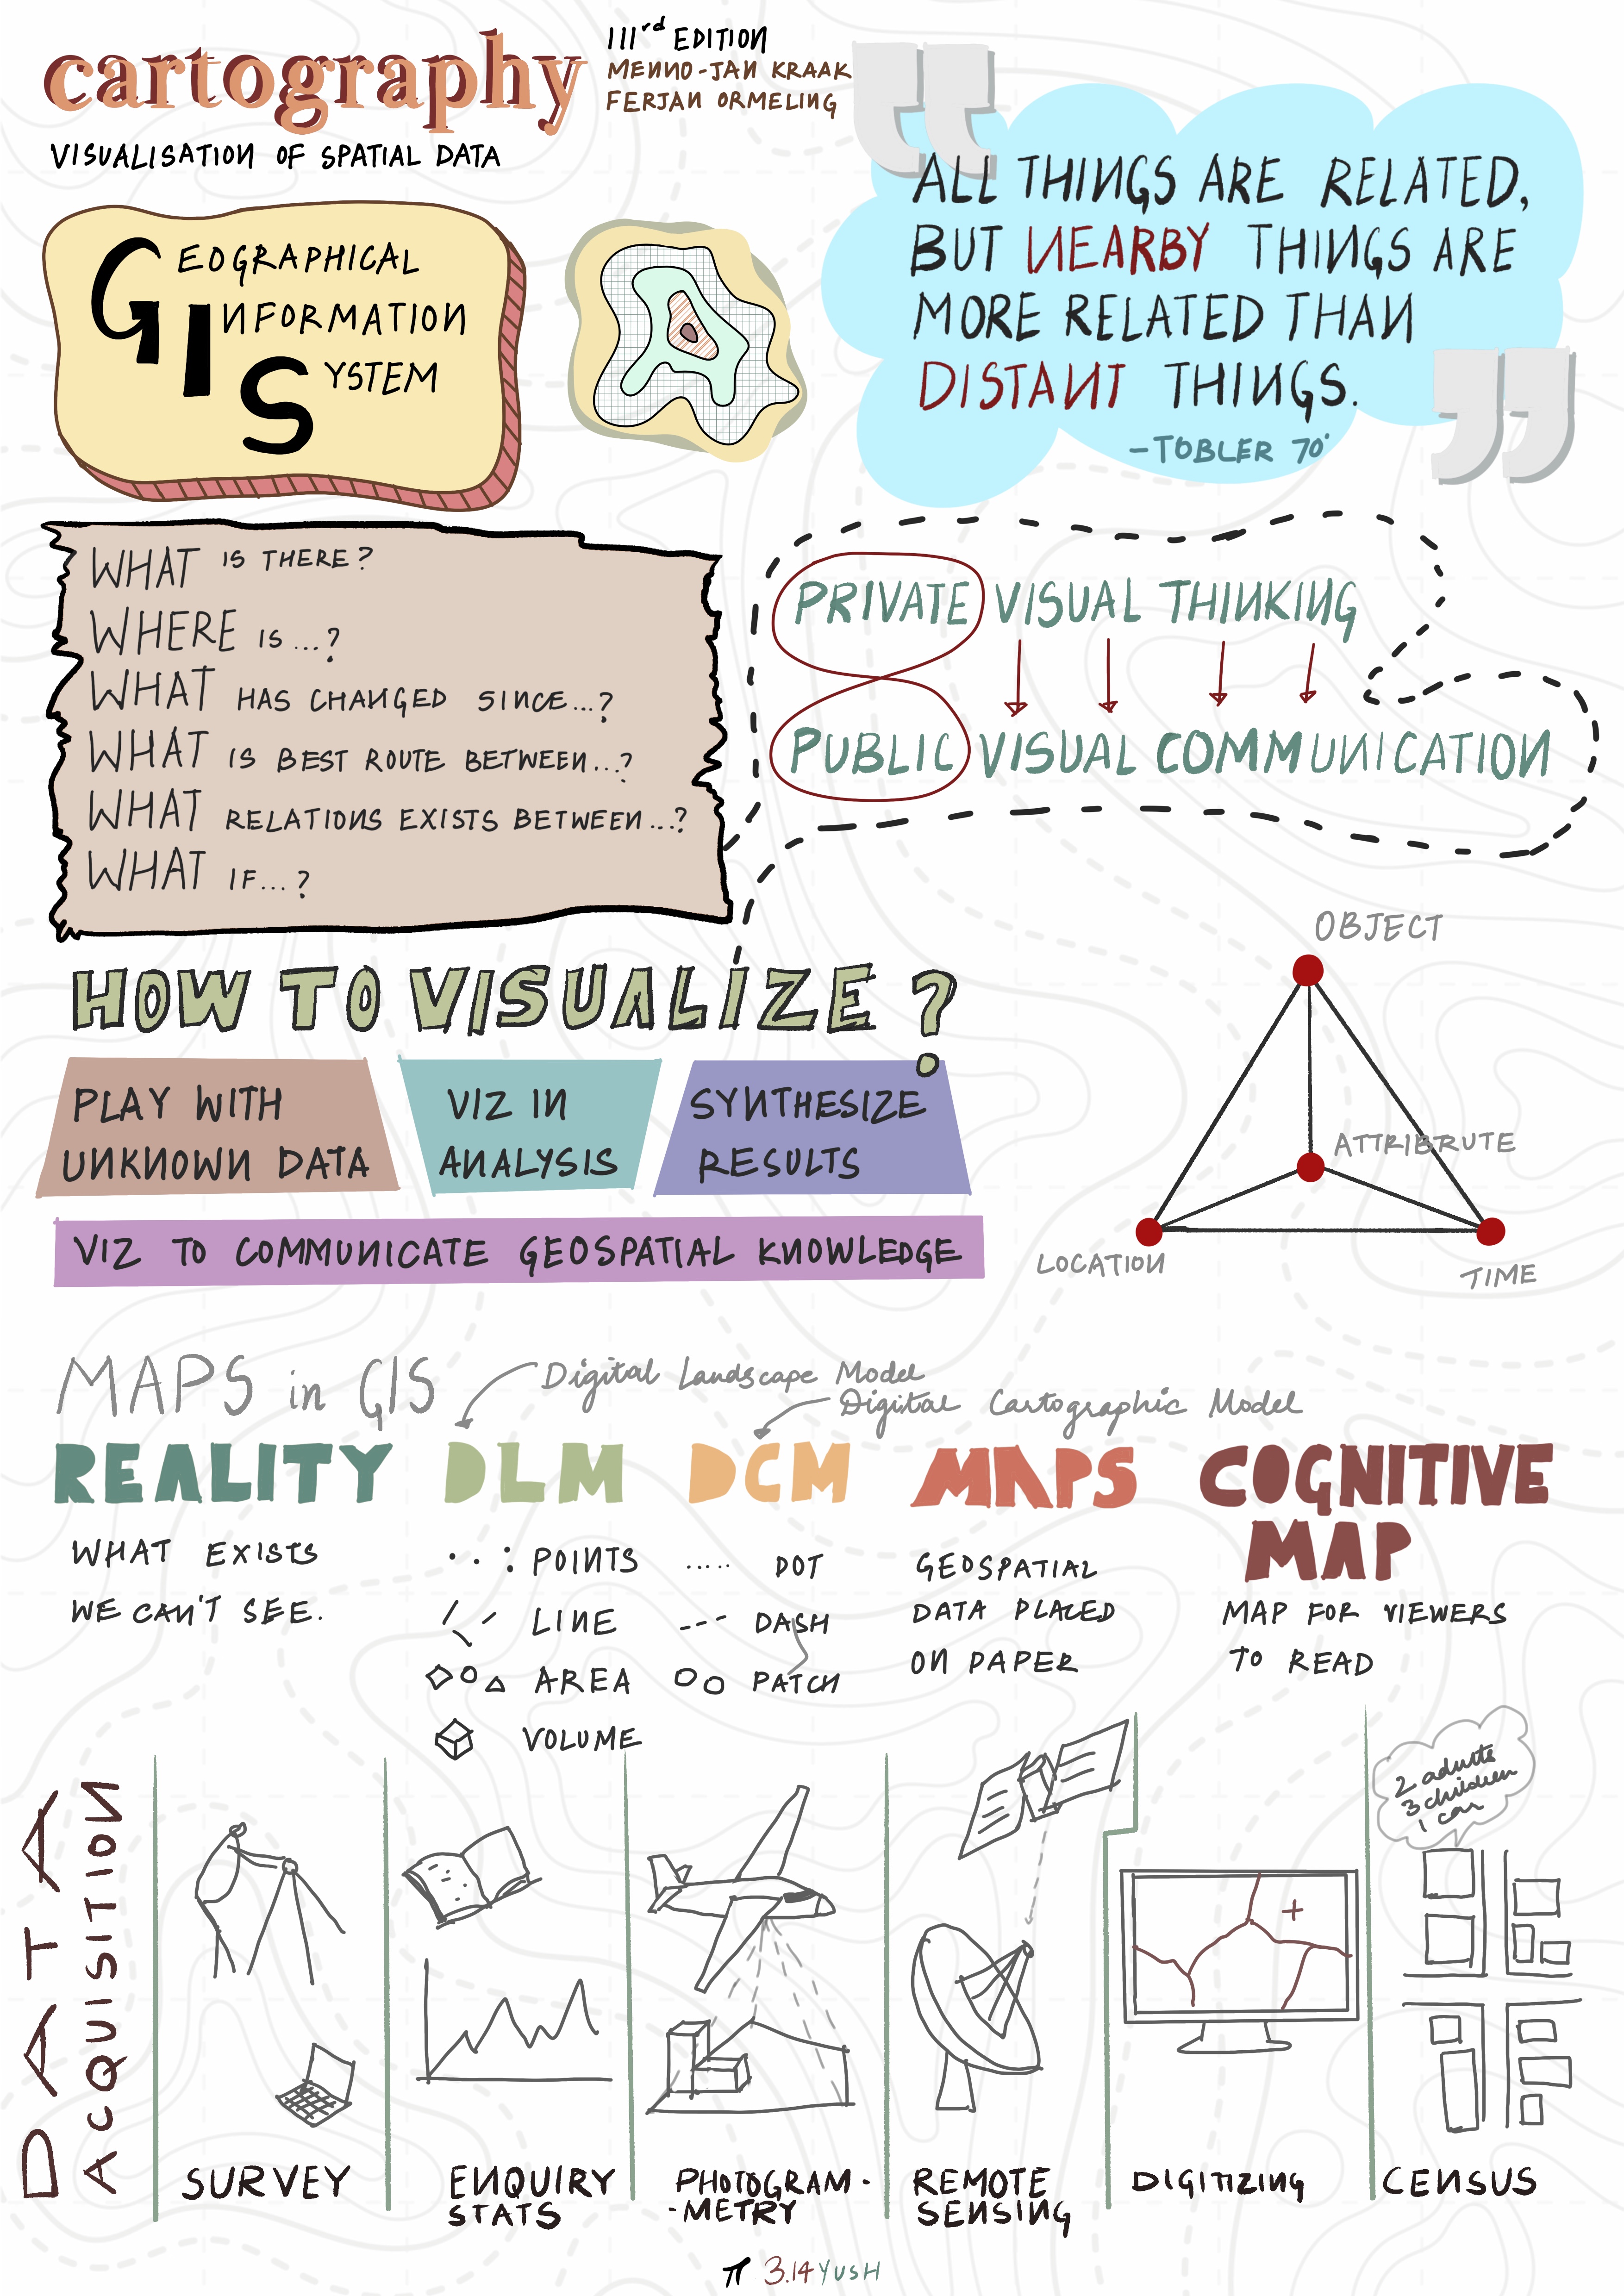 cartography
IIIrd EDITION
MENNO-JAN KRAAK
FERJAN ORMELING
VISUALISATION OF SPATIAL DATA
GEOGRAPHICAL
INFORMATION
SYSTEM
ALL THINGS ARE RELATED,
BUT NEARBY THINGS ARE
MORE RELATED THAN
DISTANT THINGS.
-TOBLER 70'
WHAT IS THERE?
WHERE IS ...?
WHAT HAS CHANGED SINCE...?
WHAT IS BEST ROUTE BETWEEN...?
WHAT RELATIONS EXISTS BETWEEN...?
WHAT IF...?
PRIVATE VISUAL THINKING
PUBLIC VISUAL COMMUNICATION
HOW TO VISUALIZE?
PLAY WITH
UNKNOWN DATA
VIZ IN
ANALYSIS
SYNTHESIZE
RESULTS
VIZ TO COMMUNICATE GEOSPATIAL KNOWLEDGE
OBJECT
ATTRIBRUTE
LOCATION
TIME
MAPS in GIS
Digital Landscape Model
Digital Cartographic Model
REALITY
WHAT EXISTS
WE CAN'T SEE.
DLM
POINTS
LINE
AREA
VOLUME
DCM
DOT
DASH
PATCH
MAPS
GEOSPATIAL
DATA PLACED
ON PAPER
COGNITIVE
MAP
MAP FOR VIEWERS
TO READ
DATA
ACQUISITION
2 adults
3 children
1 car
SURVEY
ENQUIRY
STATS
PHOTOGRAM-
-METRY
REMOTE
SENSING
DIGITIZING
CENSUS
π 3.14YUSH